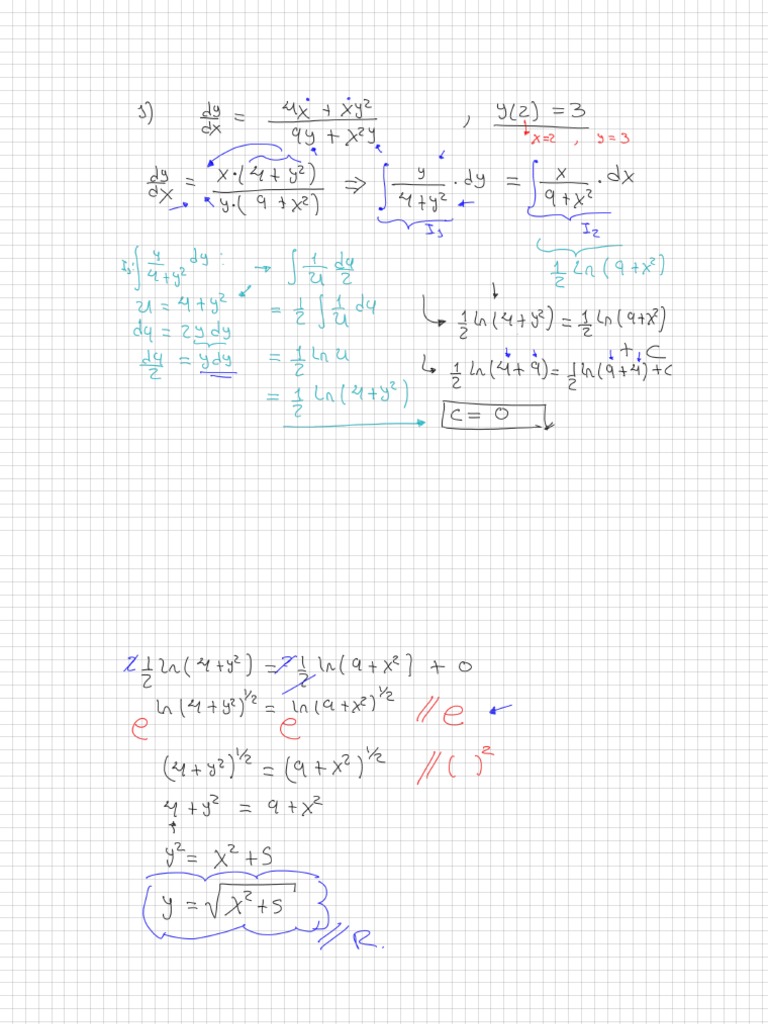 1) dy/dx = (4x + xy²)/(9y + x²y) , y(2) = 3
x=2 , y=3
dy/dx = x·(4 + y²)/y·(9 + x²) ⇒ ∫ y/(4+y²) · dy = ∫ x/(9+x²) · dx
I₁ I₂
I₁: ∫ y/(4+y²) dy : → ∫ 1/u du/2
u = 4+y² = 1/2 ∫ 1/u du
du = 2y dy = 1/2 ln u
du/2 = y dy = 1/2 ln(4+y²)
1/2 ln(9+x²)
1/2 ln(4+y²) = 1/2 ln(9+x²) + C
1/2 ln(4+9) = 1/2 ln(9+4) + C
C = 0
2 1/2 ln(4+y²) = 2 1/2 ln(9+x²) + 0
e ln(4+y²)^1/2 = e ln(9+x²)^1/2 // e
(4+y²)^1/2 = (9+x²)^1/2 // ( )²
4 + y² = 9 + x²
y² = x² + 5
y = √(x²+5) // R.